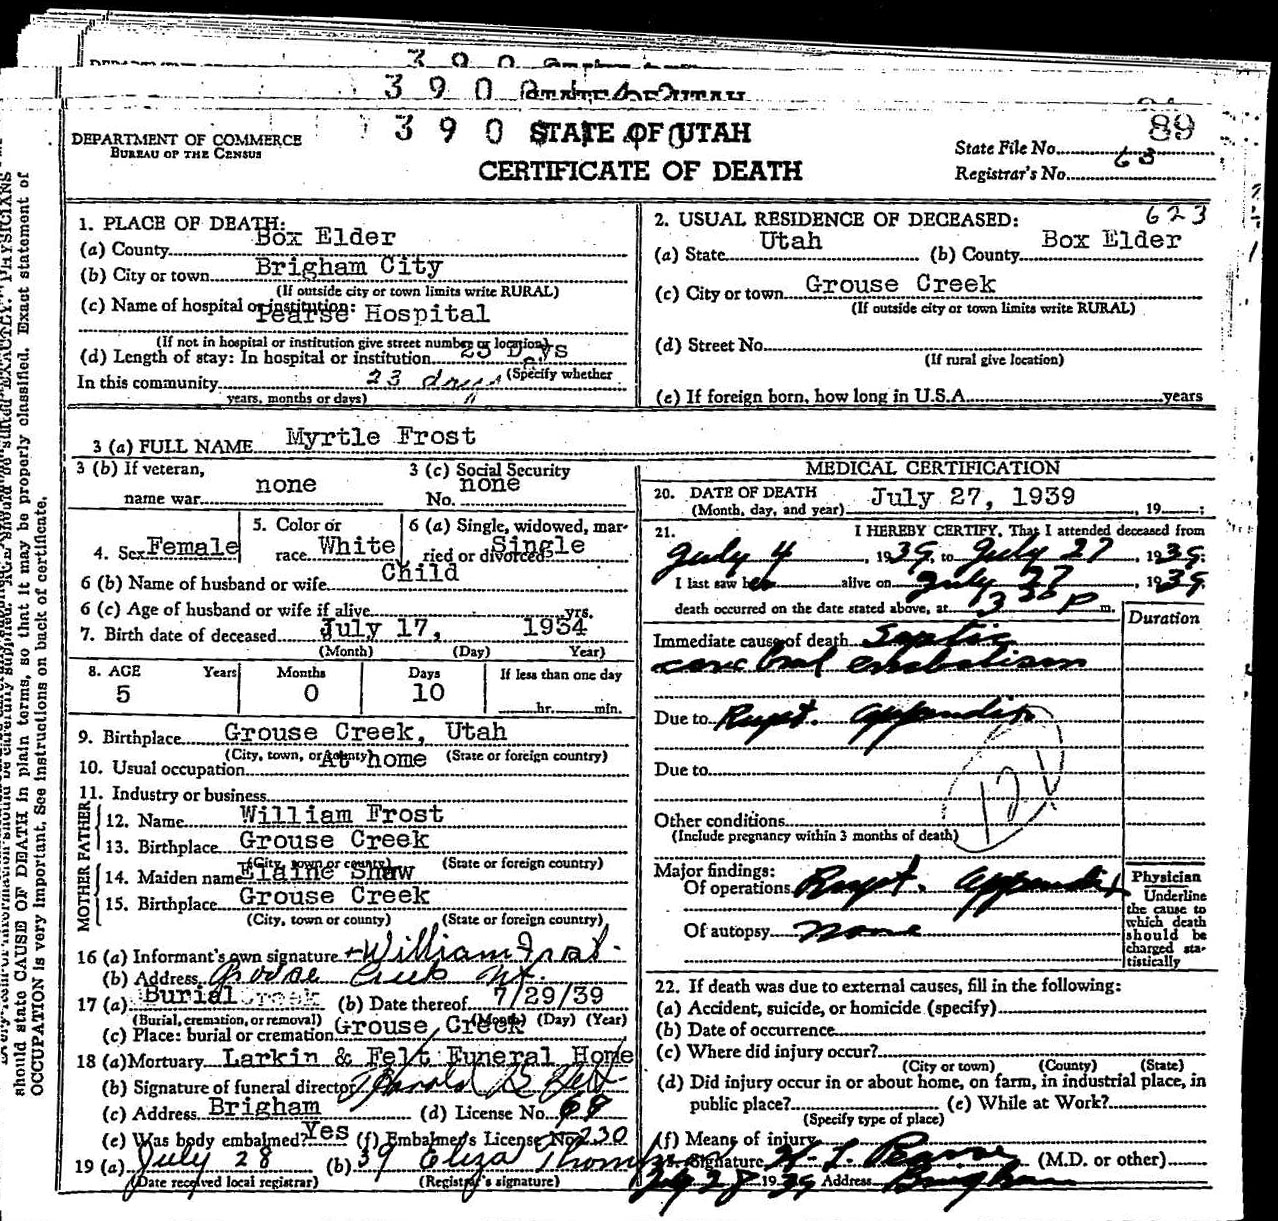 3 9 0
3 9 0 STATE OF UTAH
89
DEPARTMENT OF COMMERCE
BUREAU OF THE CENSUS
3 9 0 STATE OF UTAH
CERTIFICATE OF DEATH
State File No.
63
Registrar's No.
1. PLACE OF DEATH:
(a) County Box Elder
(b) City or town Brigham City
(If outside city or town limits write RURAL)
(c) Name of hospital or institution: Pearse Hospital
(If not in hospital or institution give street number or location)
(d) Length of stay: In hospital or institution 23 Days
(Specify whether
In this community 23 days
years, months or days)
2. USUAL RESIDENCE OF DECEASED: 623
(a) State Utah (b) County Box Elder
(c) City or town Grouse Creek
(If outside city or town limits write RURAL)
(d) Street No.
(If rural give location)
(e) If foreign born, how long in U.S.A. years
3 (a) FULL NAME Myrtle Frost
3 (b) If veteran, name war none
3 (c) Social Security No. none
4. Sex Female
5. Color or race White
6 (a) Single, widowed, married or divorced Single
Child
6 (b) Name of husband or wife
6 (c) Age of husband or wife if alive yrs.
7. Birth date of deceased July 17, 1934
(Month) (Day) Year)
8. AGE Years Months Days If less than one day
5 0 10 hr. min.
9. Birthplace Grouse Creek, Utah
(City, town, or county) (State or foreign country)
10. Usual occupation At home
11. Industry or business
FATHER
12. Name William Frost
13. Birthplace Grouse Creek
(City, town or county) (State or foreign country)
MOTHER
14. Maiden name Elaine Shaw
15. Birthplace Grouse Creek
(City, town or county) (State or foreign country)
16 (a) Informant's own signature William Frost
(b) Address Grouse Creek Ut.
17 (a) Burial (b) Date thereof 7/29/39
(Burial, cremation, or removal) (Month) (Day) (Year)
(c) Place: burial or cremation Grouse Creek
18 (a) Mortuary Larkin & Felt Funeral Home
(b) Signature of funeral director Harold B Felt
(c) Address Brigham (d) License No. 68
(e) Was body embalmed? Yes (f) Embalmer's License No. 230
19 (a) July 28 (b) 39 Eliza Thompson
(Date received local registrar) (Registrar's signature)
MEDICAL CERTIFICATION
20. DATE OF DEATH July 27, 1939
(Month, day, and year) , 19 ;
21. I HEREBY CERTIFY, That I attended deceased from
July 4, 1939, to July 27, 1939;
I last saw her alive on July 27, 1939.
death occurred on the date stated above, at 3 20 P m.
Duration
Immediate cause of death Septic
cerebral embolism
Due to Rupt. appendix
Due to
121
Other conditions
(Include pregnancy within 3 months of death)
Major findings:
Of operations Rupt. appendix
Of autopsy none
Physician
Underline
the cause to
which death
should be
charged sta-
tistically
22. If death was due to external causes, fill in the following:
(a) Accident, suicide, or homicide (specify)
(b) Date of occurrence
(c) Where did injury occur?
(City or town) (County) (State)
(d) Did injury occur in or about home, on farm, in industrial place, in
public place? (e) While at Work?
(Specify type of place)
(f) Means of injury
23. Signature W. L. Pearse (M.D. or other)
July 28 1939 Address Brigham
should state CAUSE OF DEATH in plain terms, so that it may be properly classified. Exact statement of
OCCUPATION is very important. See instructions on back of certificate.